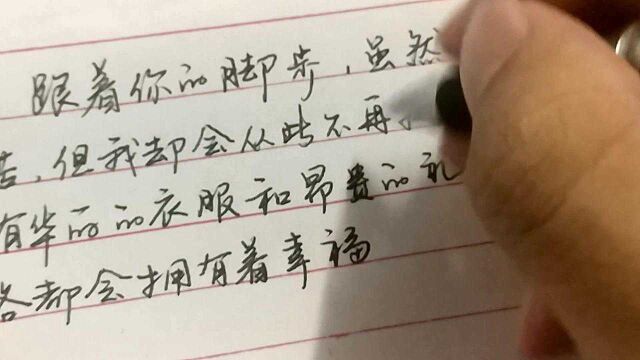 跟着你的脚步，虽然
苦，但我却会从此不再
有华丽的衣服和昂贵的礼
都会拥有着幸福